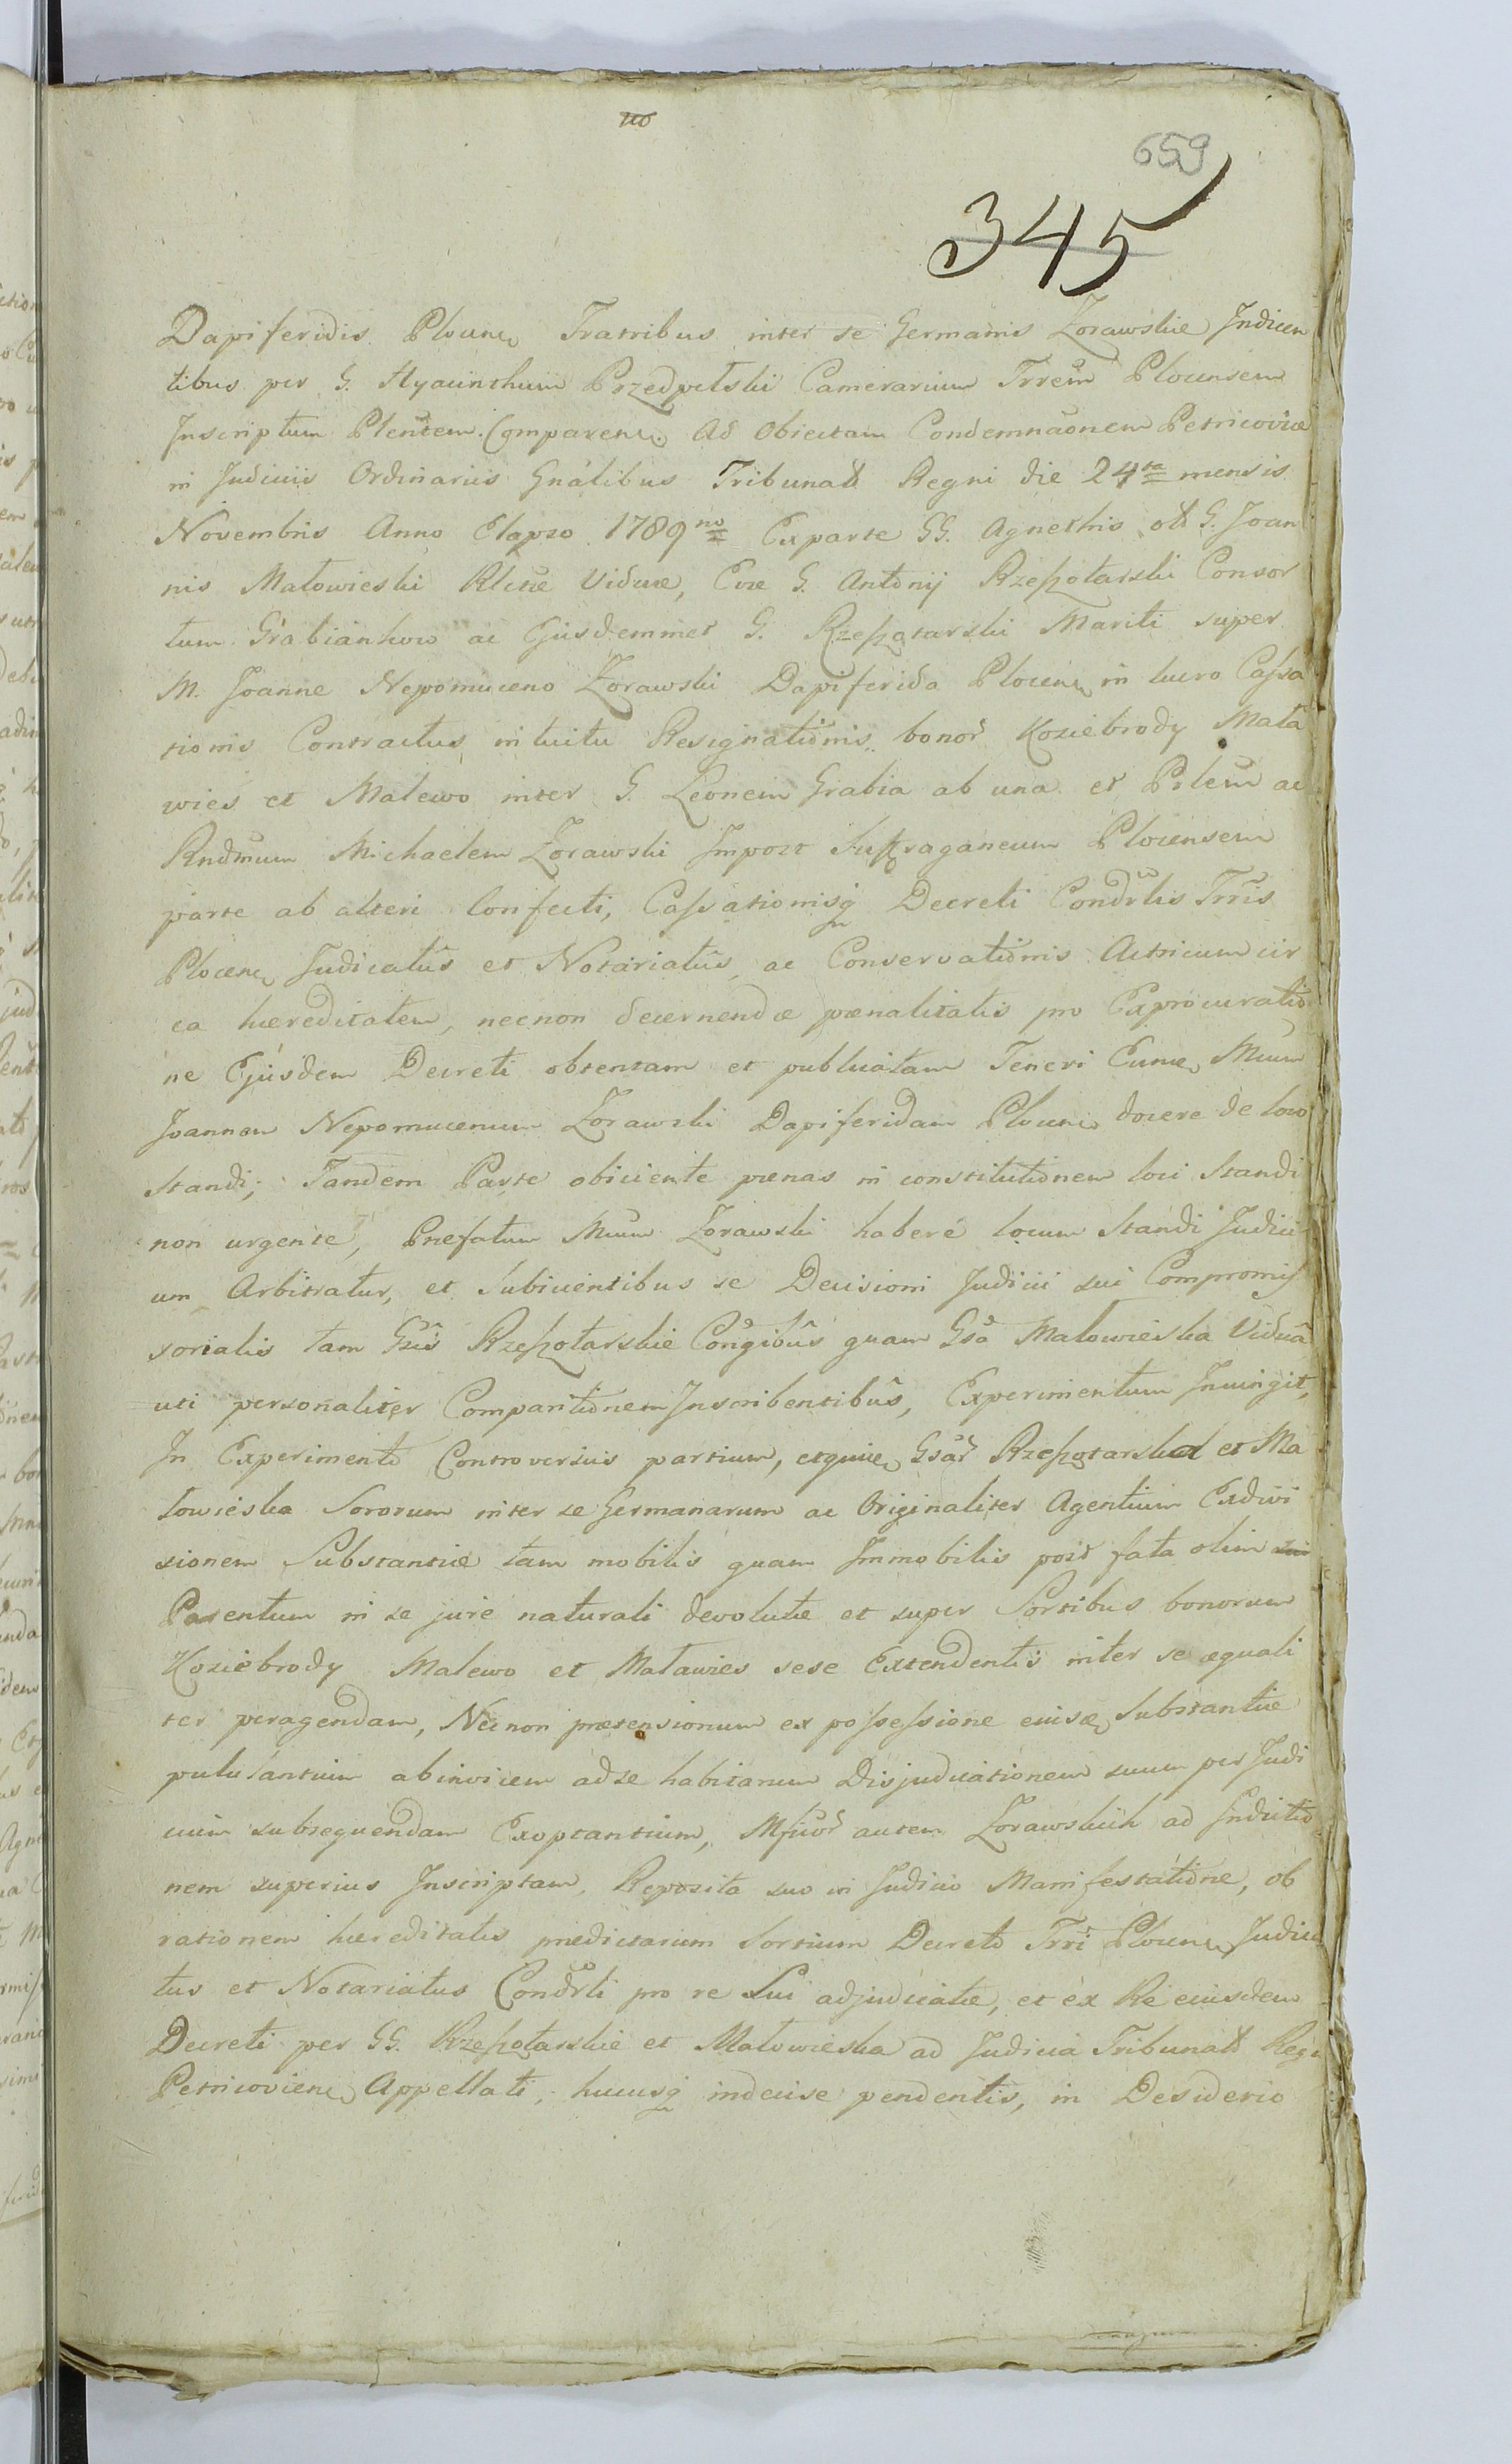 659
345
Dapiferidis Plocens Fratribus inter se Germanis Zorawskie Judicen
tibus per G. Hyacinthum Przedpełski Camerarium Trrem Plocensem
Inscriptum Plentem. Comparens. Ad Obiectam Condemnãonem Petricoviæ
in Judiciis Ordinariis Gnãlibus Tribunałł Regni die 24ta mensis
Novembris Anno Elapso 1789no Exparte GG. Agnethis olł G. Joan
nis Małowieski Rlictæ Viduæ, Evæ G. Antonij Rzeszotarski Consor
tum Grabianków ac Ejusdemmet G. Rzeszotarski Mariti super
M. Joanne Nepomuceno Zorawski Dapiferida Plocens in lucro Cassa
tionis Contractus intuitu Resignationis bonor Koziebrody Mała
wies et Malewo inter G. Leonem Grabia ab una et Prlem ac
Rndmum Michaelem Zorawski Suffraganeum Plocensem
parte ab alteri Confecti, Cassationisq Decreti Condrlis Trris
Plocens Judicatûs et Notariatûs, ac Conservationis Actricum cir
ca hæreditatem, necnon decernendæ pœnalitatis pro Exprocuratio
ne Ejusdem Decreti obtentam et publicatam Teneri Eunde Mum
Joannem Nepomucenum Zorawski Dapiferidam Plocens docere de loco
Standi; Tandem Parte obiciente pœnas in constitutionem loci Standi
non urgente, Præfatum Mum Zorawski habere locum Standi Judici
um Arbitratur, et Subicientibus se Decisioni Judicii sui Compromis
sorialis tam Gsis Rzeszotarskie Congibûs quam Gsã Małowieska Viduâ
uti personaliter Comparitionem Inscribentibûs, Experimentum Injungit,
In Experimento Controversiis partium, Gsãr Rzeszotarska et Ma
łowieska Sororum inter se Germanarum ac Originaliter Agentium Exdivi
sionem Substantiæ tam mobilis quam Immobilis post fata olim
Parentum in se jure naturali devolutæ et super Sortibus bonorum
Koziebrody Malewo et Maławies sese Extendentis inter se æquali
ter peragendam, Necnon prætensionum ex possessione eiusde Substantiæ
pululantium abinvicem adse habitarum Disjudicationem suum per Judi
cium subsequendam Exoptantium, autem Zorawskich ad Inductio
nem superius Inscriptam, Reposita suo in Judicio Manifestatione, ob
rationem hæreditatis prædictarum Sortium Decreto Trri Plocens Judica
tus et Notariatus Condrli pro re Sui adjudicatæ, et ex Re eiusdem
Decreti per GG. Rzeszotarskie et Małowieska ad Judicia Tribunałł Regi
Petricoviens Appellati, hucusq indecise pendentis, in Desiderio